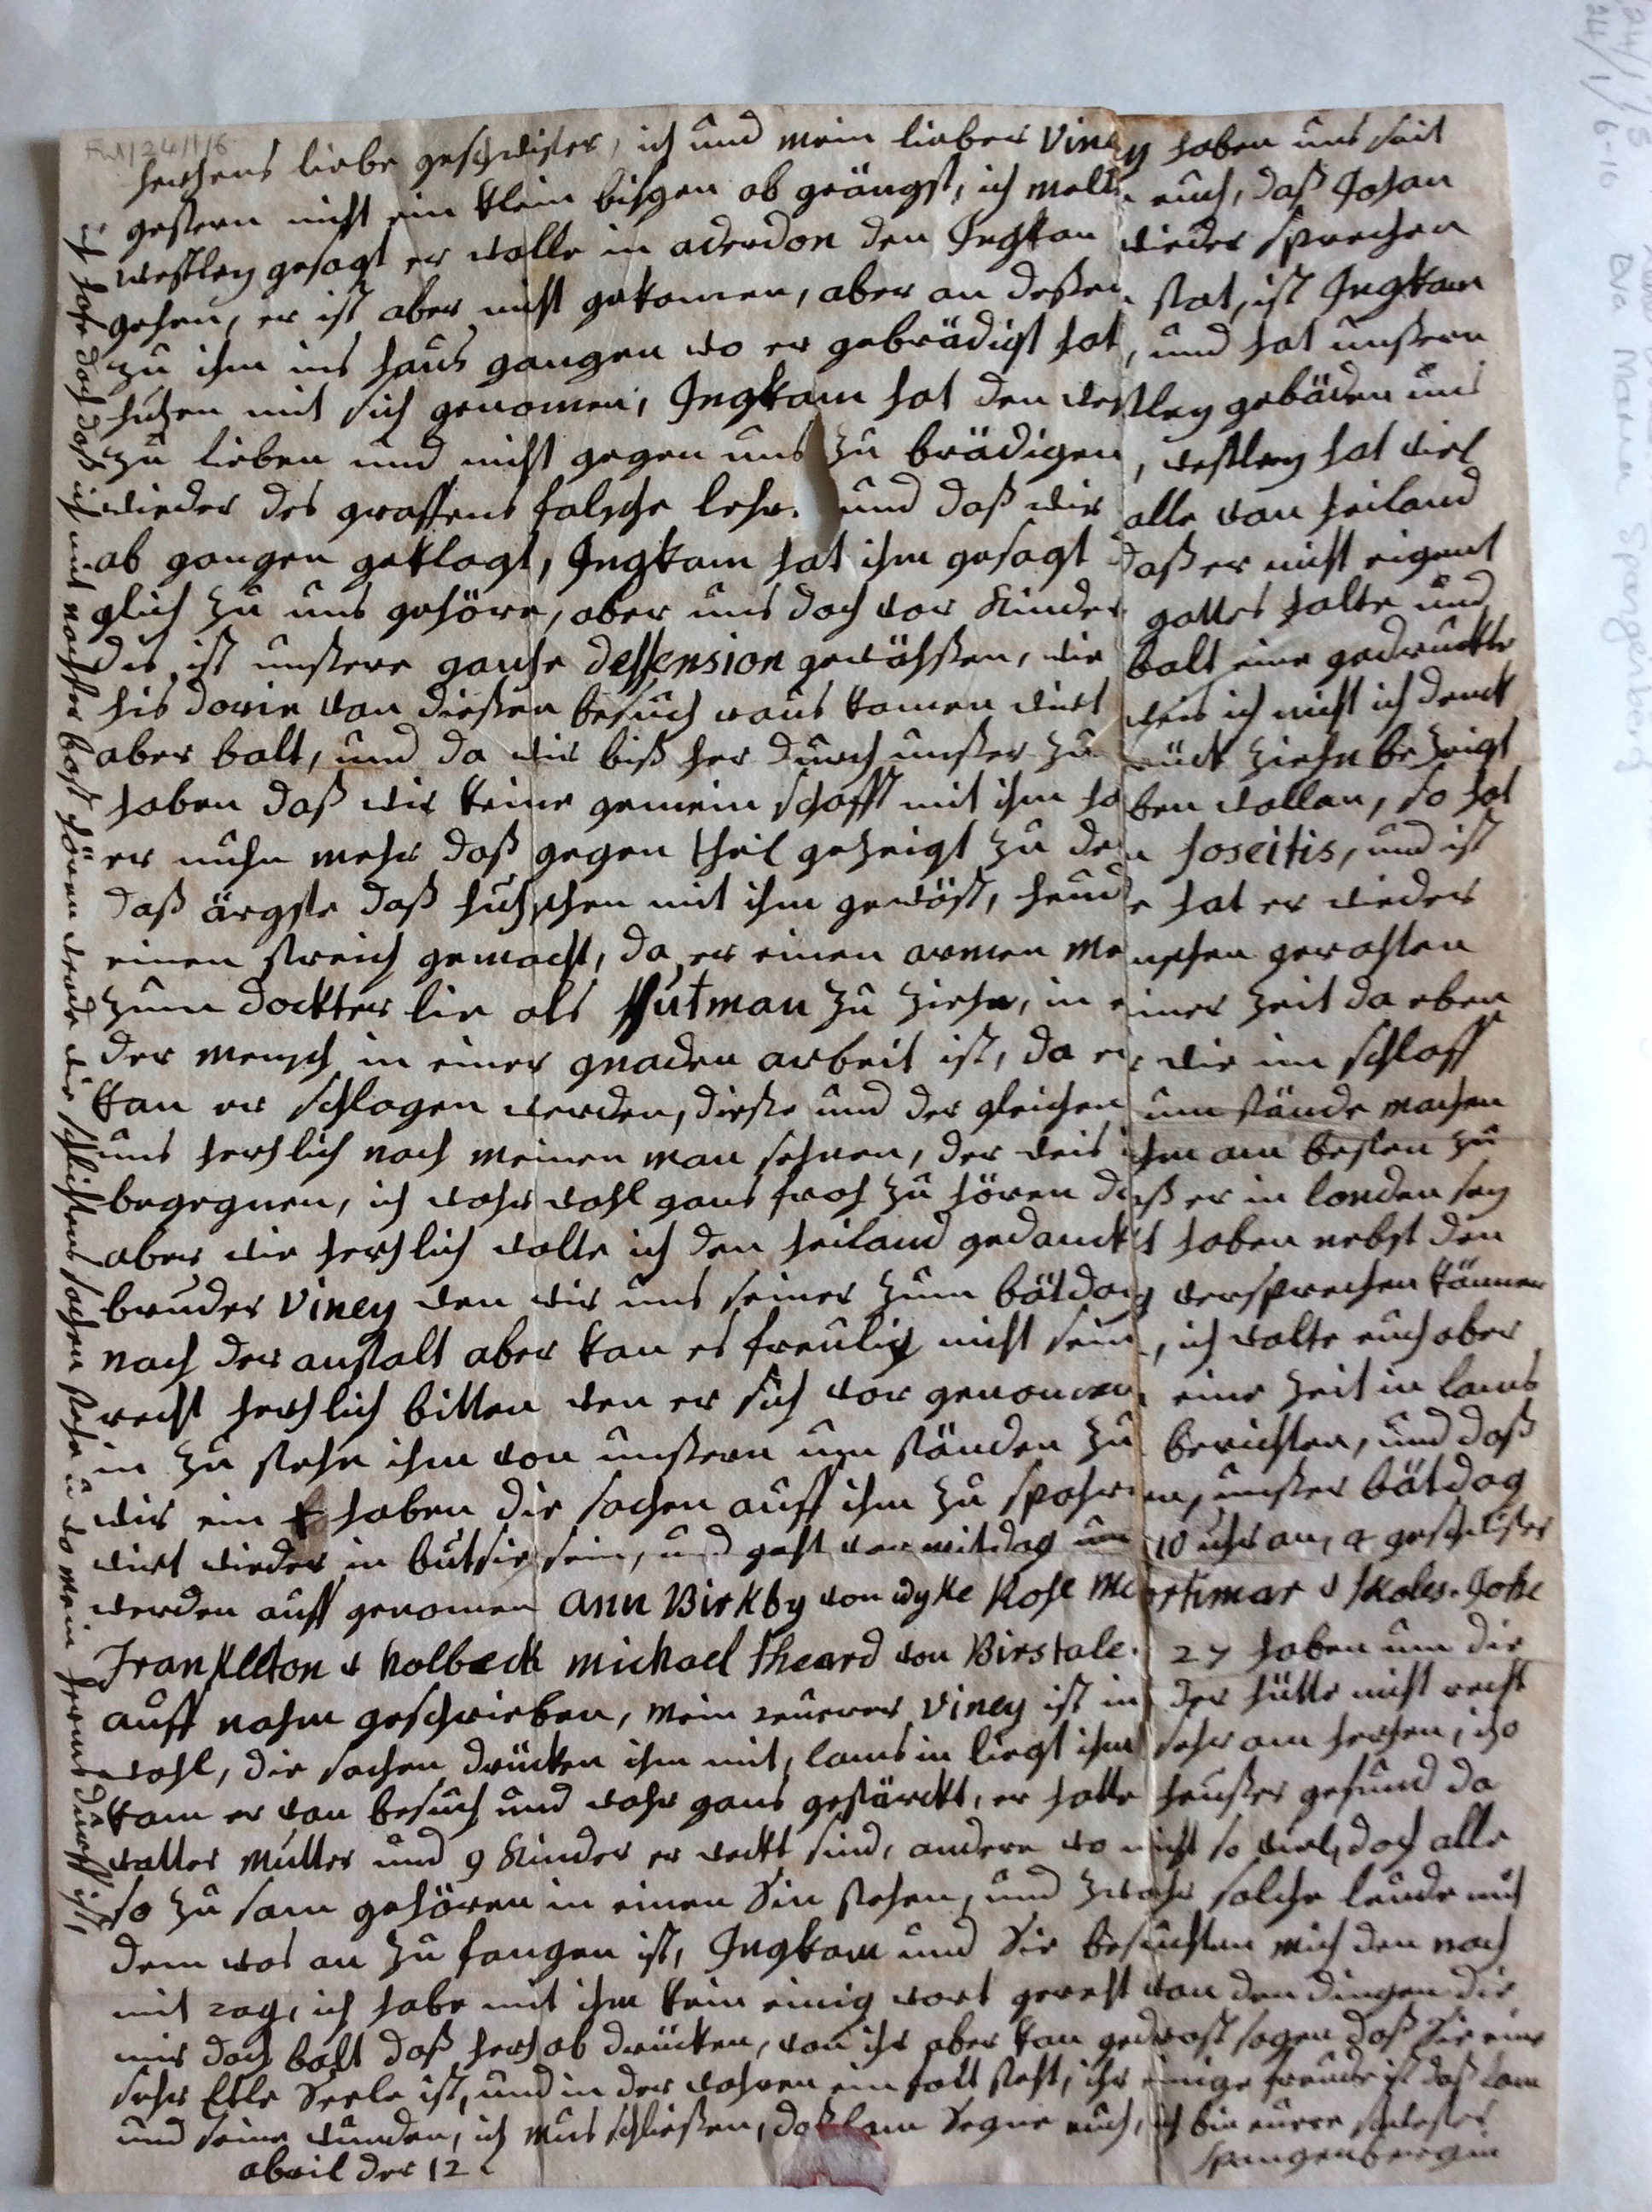 herzens liebe geschwister, ich und mein lieber Viney haben uns seit
gestern nicht ein klein bisgen ab geängst, ich melde euch, daß Johan
westley gesagt er wolle in aderdon den Ingkam wieder sprechen
gehen, er ist aber nicht gekomen, aber an deßen stat, ist Ingkam
zu ihm ins haus gangen wo er gebrädigt hat, und hat unßern
hutzen mit sich genomen, Ingkam hat den westley gebäden uns
zu lieben und nicht gegen uns zu brädigen, westley hat viel
wieder des graffens falsche lehr und daß wir alle von heiland
ab gangen geklagt, Ingkam hat ihm gesagt daß er nicht eigent
glich zu uns gehöre, aber uns doch vor Kinder gottes halte und
das ist unßere gantze deffension gewäßen, wie balt eine gedruckte
his dorie von dießen besuch raus komen wirt weis ich nicht ich denck
aber balt, und da wir biß her durch unßer zu rück ziehn bezeigt
haben daß wir keine gemein schafft mit ihm haben wollen, so hat
er nuhn mehr daß gegen theil gezeigt zu den hoseitis, und ist
daß ärgste daß hutzschen mit ihm gewäst, heude hat er wieder
einen streich gemacht, da er einen armen menschen gerahten
zum dockter lie als Putman zu ziehn, in einer zeit da eben
der mensch in einer gnaden arbeit ist, da er wie im schlaff
kan er schlagen werden, dieße und der gleichen um stände machen
uns hertzlich nach meinen man sehnen, der weis ihm am besten zu
begegnen, ich wahr wohl gans froh zu hören daß er in londen sey
aber wie hertzlich wolte ich den heiland gedanckt haben nebst den
bruder Viney wen wir uns seiner zum bätdag versprechen können
nach der anstalt aber kan es freulig nicht sein, ich wolte euch aber
recht hertzlich bitten wen er sich vor genomen eine zeit in lams
in zu stehn ihm von unßern um ständen zu berichten, und daß
wir ein haben die sachen auff ihm zu spahren, unßer bätdag
wirt wieder in butsie sein, und geht vor mitdag um 10 uhr an, 4 geschwister
werden auff genomen ann Birkby von wyke Rose Mortimar v skoles. John
Frankleton v holbeck michael sheard von Birstale. 27 haben um die
auff nahm geschrieben, mein teurer Viney ist in der hütte nicht recht
wohl, die sachen drücken ihm mit, lamsin liegt ihm sehr am hertzen, itzo
kam er von besuch und wahr gans gestärckt, er hatte heußer gefund da
vatter mutter und 9 Kinder er weckt sind, andere wo nicht so viel, doch alle
so zu sam gehören in einen Sin stehen, und zwahr solche leude mit
dem was an zu fangen ist, Ingkam und Sie besuchten mich den nach
mit tag, ich habe mit ihm kein einig wort gereht von den dingen die
mir doch balt daß hertz ab drücken, von ihr aber kan gedrost sagen daß Sie eine
sehr Edle Seele ist, und in der wahren ein falt steht, ihr einige freude ist daß lam
und seine wunden, ich mus schließen, daß lam Segne euch, ich bin eure schwester
abril der 12 Spangenbergin
ich hoffe doch daß ich mit nächster bost hören werde wie schlichtens sachen stehn u wo mein hertz drauff ist